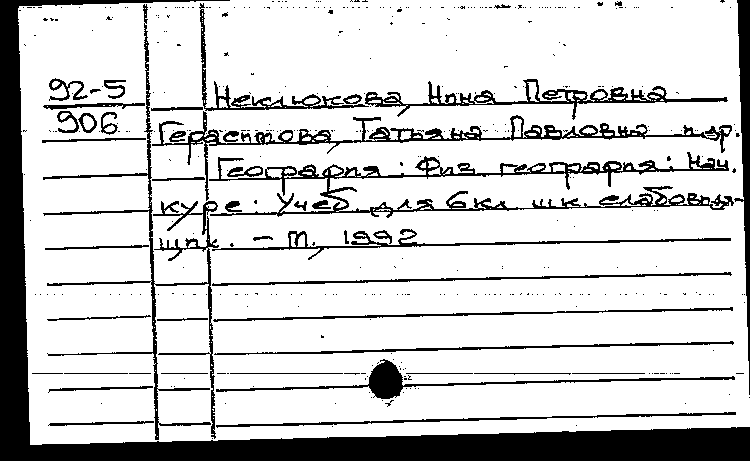 92-5
Неклюкова, Нина Петровна
906
Герасимова, Татьяна Павловна и др.
География: Физ. география: Нач.
курс: Учеб. для 6 кл. шк. слабовидя-
щих. – М., 1992